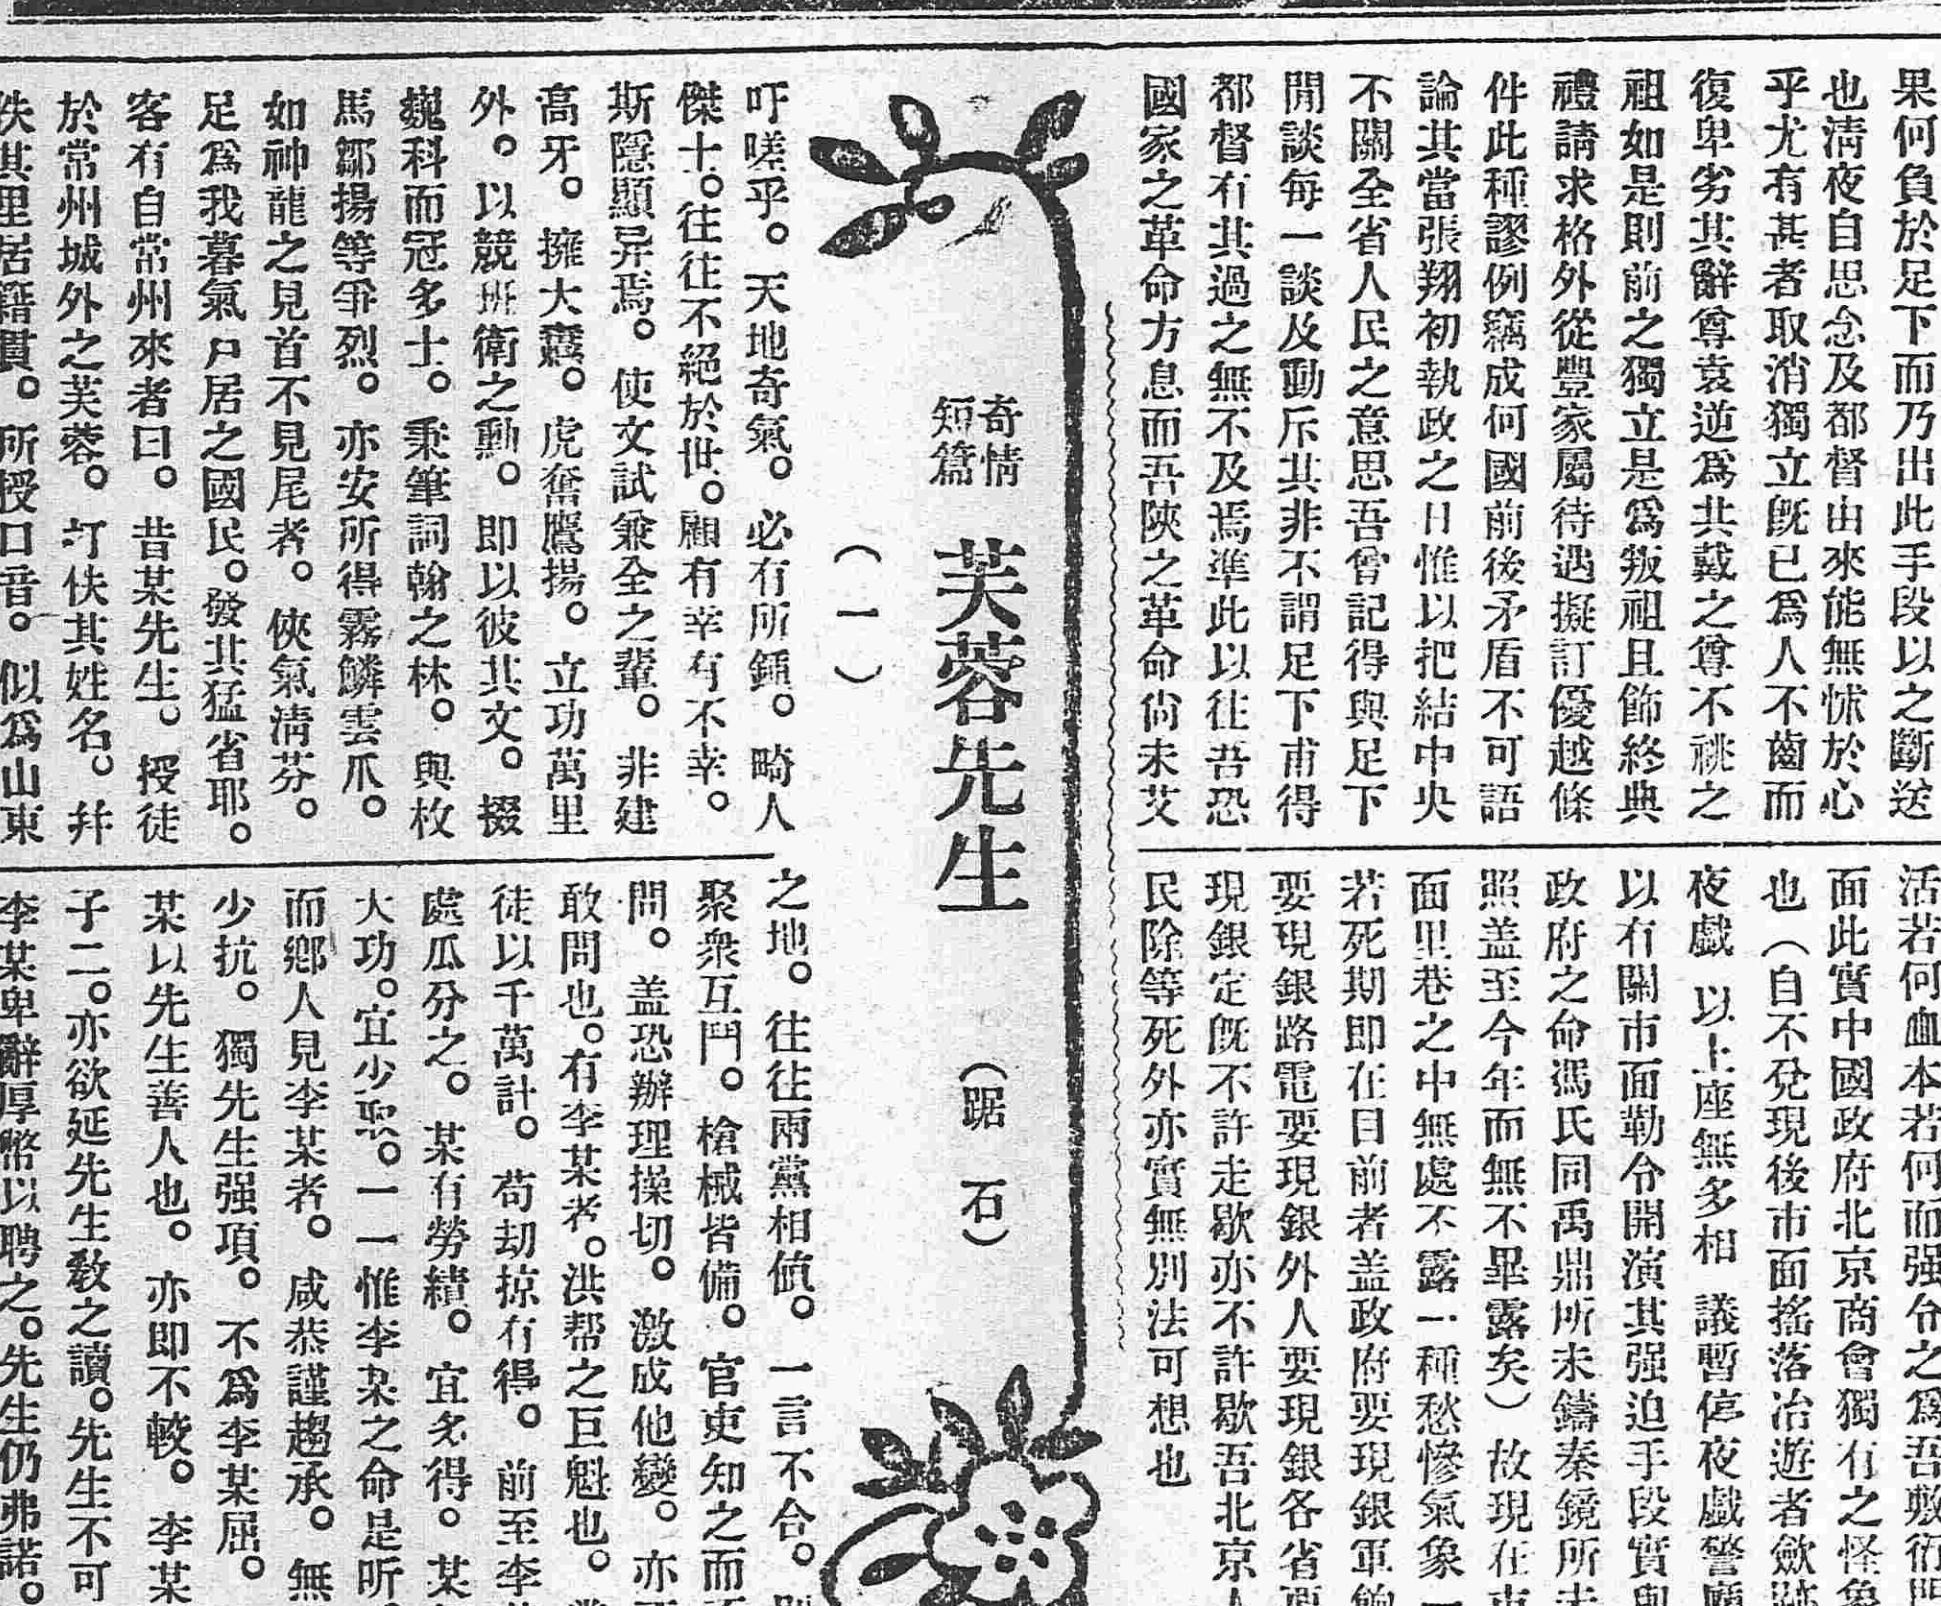 果何負於足下而乃出此手段以之斷送
也淸夜自思念及都督由來能無怵於心
乎尤有甚者取消獨立旣已爲人不齒而
復卑劣其辭尊袁逆爲共戴之尊不祧之
祖如是則前之獨立是爲叛祖且飾終典
禮請求格外從豐家屬待遇擬訂優越條
件此種謬例竊成何國前後矛盾不可語
論其當張翔初執政之日惟以把結中央
不關全省人民之意思吾曾記得與足下
閒談每一談及動斥其非不謂足下甫得
都督有其過之無不及焉準此以往吾恐
國家之革命方息而吾陝之革命尙未艾
活若何血本若何而强令之爲吾敷衍門
面此實中國政府北京商會獨有之怪象
也（自不兌現後市面搖落冶遊者歛跡
夜戲 以上座無多相 議暫停夜戲警廳
以有關市面勒令開演其强迫手段實與
政府之命馮氏同禹鼎所未鑄秦鏡所未
照盖至今年而無不畢露矣）故現在市
面里巷之中無處不露一種愁慘氣象一
若死期即在目前者盖政府要現銀軍餉
要現銀路電要現銀外人要現銀各省要
現銀定旣不許走歇亦不許歇吾北京人
民除等死外亦實無別法可想也
奇情
短篇
芙蓉先生
（踞石）
（一）
吁嗟乎。天地奇氣。必有所鍾。畸人
傑士。往往不絕於世。顧有幸有不幸。
斯隱顯异焉。使文試兼全之輩。非建
高牙。擁大纛。虎奮鷹揚。立功萬里
外。以競班衛之勳。即以彼其文。掇
巍科而冠多士。秉筆詞翰之林。與枚
馬鄒揚等爭烈。亦安所得霧鱗雲爪。
如神龍之見首不見尾者。俠氣淸芬。
足爲我暮氣尸居之國民。發其猛省耶。
客有自常州來者曰。昔某先生。授徒
於常州城外之芙蓉。打佚其姓名。幷
佚其里居籍貫。所授口音。似爲山東
之地。往往兩黨相値。一言不合。則
聚衆互鬥。槍械皆備。官吏知之而不
問。盖恐辦理操切。激成他變。亦不
敢問也。有李某者。洪帮之巨魁也。黨
徒以千萬計。苟刧掠有得。前至李
處瓜分之。某有勞績。宜多得。某
大功。宜少取。一一惟李某之命是听。
而鄉人見李某者。咸恭謹趨承。無
少抗。獨先生强項。不爲李某屈。
某以先生善人也。亦即不較。李某
子二。亦欲延先生敎之讀。先生不可
李某卑辭厚幣以聘之。先生仍弗諾。